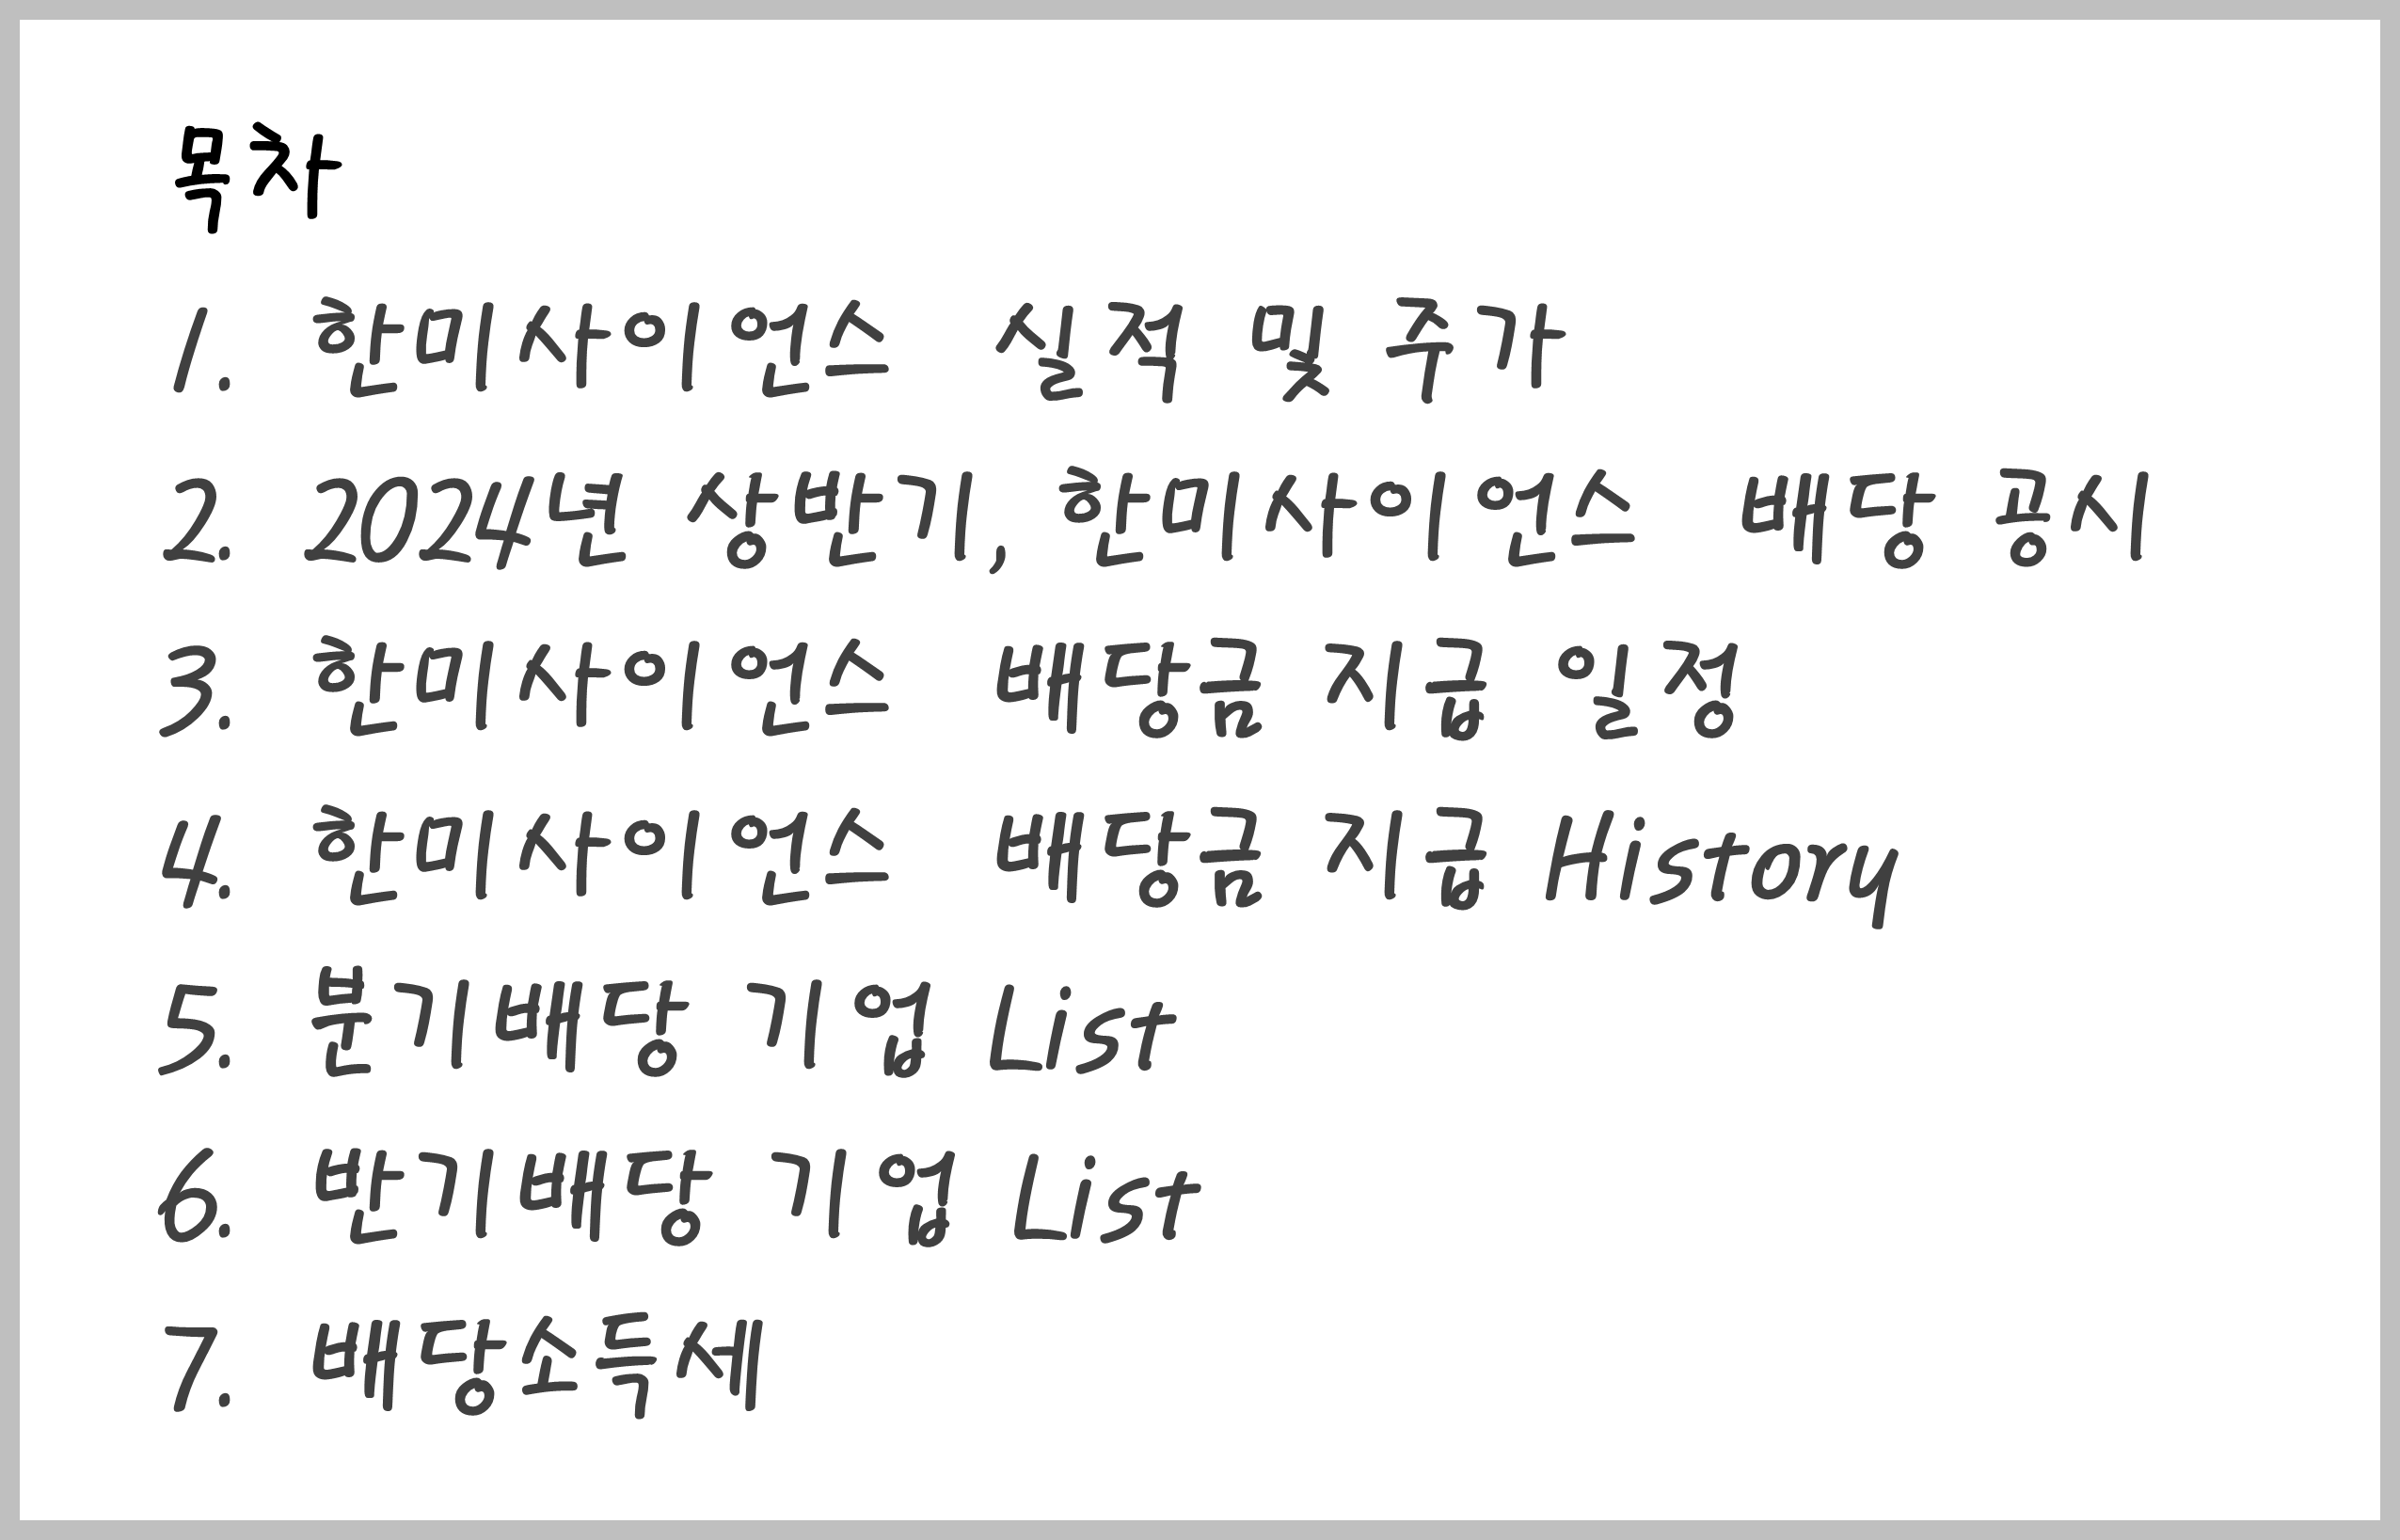 목차
1. 한미사이언스 실적 및 주가
2. 2024년 상반기, 한미사이언스 배당 공시
3. 한미사이언스 배당금 지급 일정
4. 한미사이언스 배당금 지급 History
5. 분기배당 기업 List
6. 반기배당 기업 List
7. 배당소득세